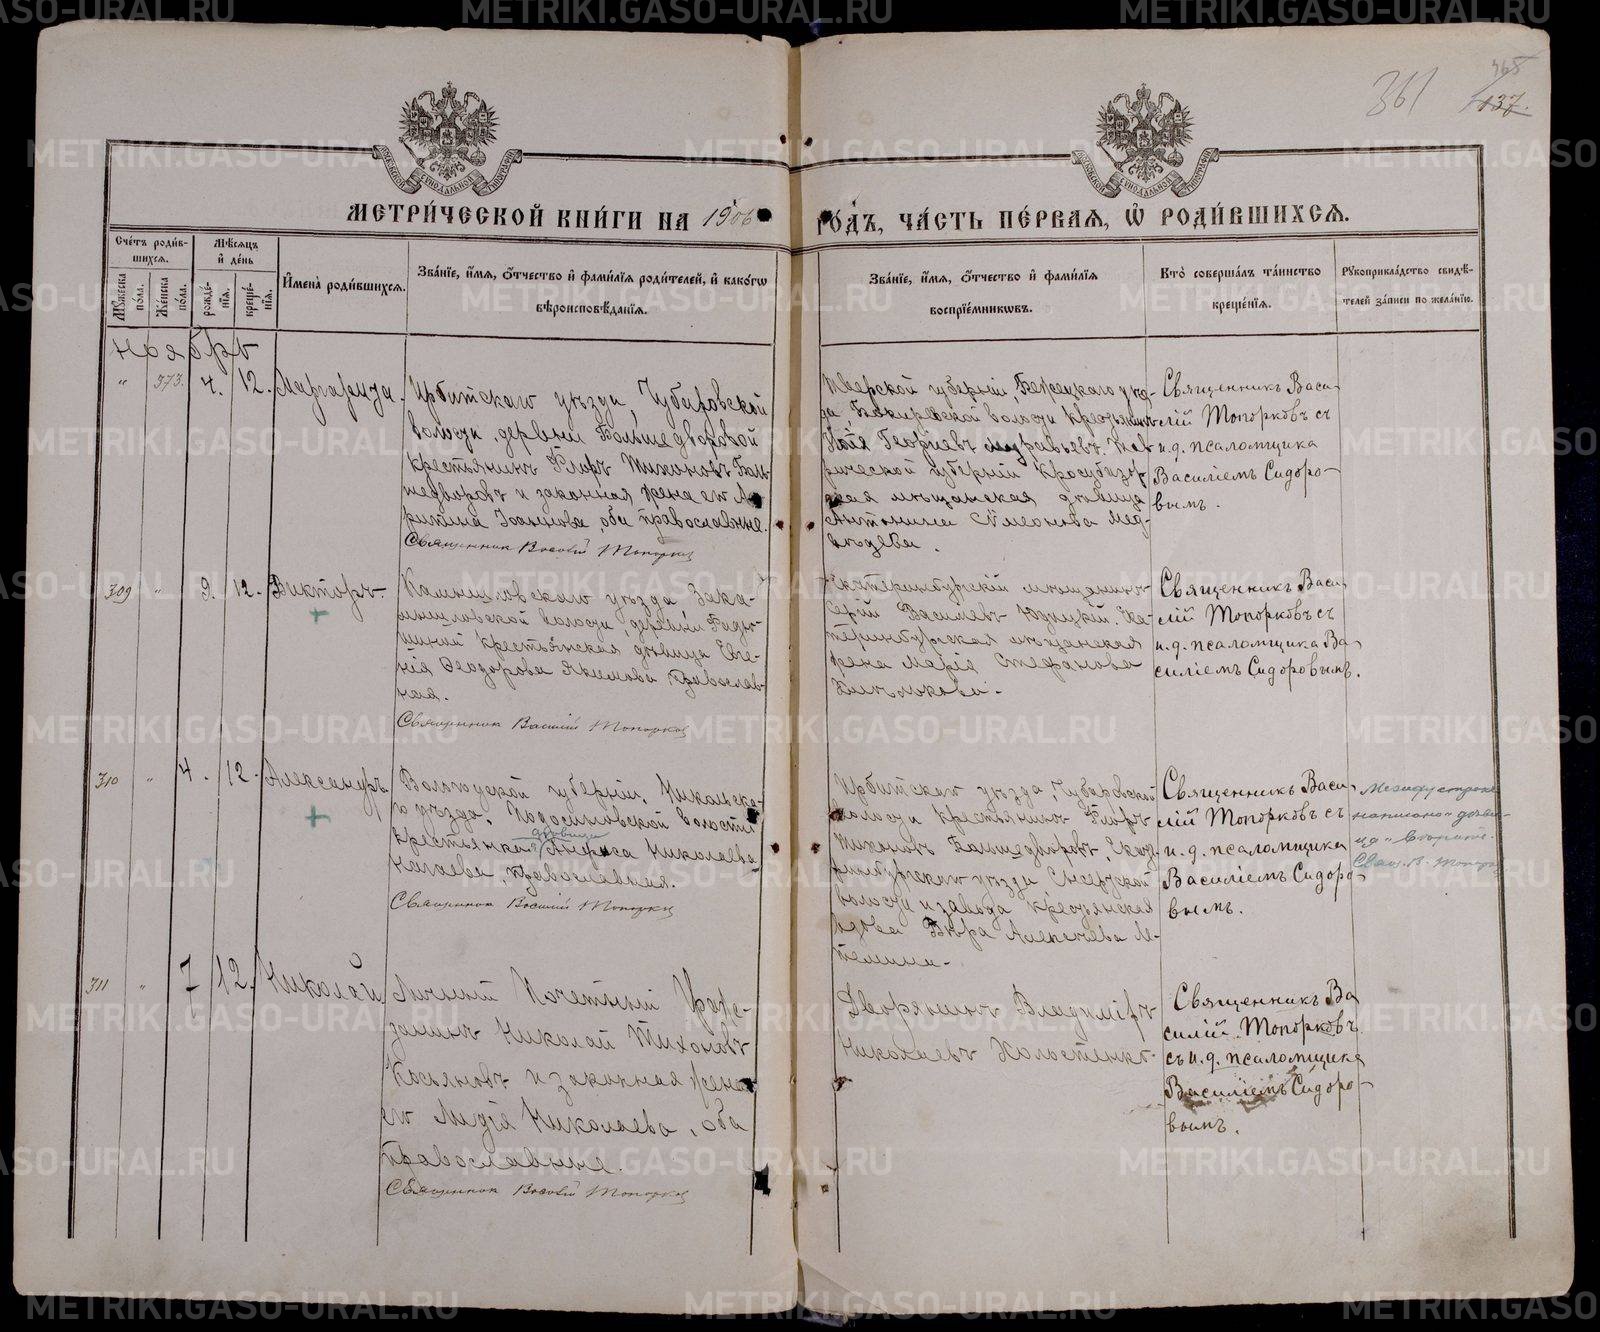 METRIKI.GASO-URAL.RU
361
468
137.
МОСКОВСКОЙ СѴНОДАЛЬНОЙ ТИПОГРАФІИ
МЕТРИ́ЧЕСКОЙ КНИ́ГИ НА 1906 ГО́ДЪ, ЧА́СТЬ ПЕ́РВАЯ, Ѡ҆ РОДИ́ВШИХСЯ.
Сче́тъ роди́в-
шихся.
Мѣ́сяцъ
и҆ де́нь
Мꙋ́жеска
по́ла.
Же́нска
по́ла.
рожде́-
нїѧ.
креще́-
нїѧ.
И҆мена̀ роди́вшихся.
Зва́нїе, и҆́мѧ, ѻ҆́тчество и҆ фами́лїѧ роди́телей, и҆ како́гѡ
вѣроисповѣ́данїѧ.
Зва́нїе, и҆́мѧ, ѻ҆́тчество и҆ фами́лїѧ
воспрїе́мникѡвъ.
Кто̀ соверша́лъ та́инство
креще́нїѧ.
Рꙋкоприкла́дство свидѣ́-
телей за́писи по жела́нїю.
ноябрь
" 373. 4. 12. Маргарита.
Ирбитскаго уѣзда, Чубаровской
волости, деревни Большедворовой
крестьянинъ Флоръ Тихоновъ Боль-
шедворовъ и законная жена его
Іоаннова, оба православные.
Священник Василій Топорков
Тверской губерніи, Бежецкаго уѣз-
да волости крестьянинъ
Георгіевъ Муравьевъ. Тав-
рической губерніи
мѣщанская дѣвица
Антонина Симеонова Мед-
вѣдева.
Священникъ Васи-
лій Топорковъ съ
и.д. псаломщика
Василіемъ Сидоро-
вымъ.
309 " 9. 12. Викторъ.
Камышловскаго уѣзда, Зака-
мышловской волости, деревни
крестьянская дѣвица Евге-
нія Ѳеодорова Якимова православ-
ная.
Священник Василій Топорков
Екатеринбургскій мѣщанинъ
Василіевъ Ека-
теринбургская мѣщанская
жена Марія Стефанова
Священникъ Васи-
лій Топорковъ съ
и.д. псаломщика Ва-
силіемъ Сидоровымъ.
310 " 4. 12. Александръ
Вологодской губерніи, Никольска-
го уѣзда, Подосиновской волости
дѣвица
крестьянская Николаева
православная.
Священник Василій Топорков
Ирбитскаго уѣзда, Чубаровской
волости крестьянинъ Флоръ
Тихоновъ Большедворовъ, Екате-
ринбургскаго уѣзда Сысертской
волости и завода крестьянская
вдова Вѣра Алексѣева
Священникъ Васи-
лій Топорковъ съ
и.д. псаломщика
Василіемъ Сидоро-
вымъ.
Между строкъ
написано "дѣви-
ца" вѣрьте.
Свящ. В. Топорков
311 " 7 12. Николай
Личный Почетный Граж-
данинъ Николай Тихоновъ
Касьяновъ и законная жена
его Лидія Николаева, оба
православные.
Священник Василій Топорков
Дворянинъ Владиміръ
Николаевъ Холостенко.
Священникъ Ва-
силій Топорковъ
съ и.д. псаломщика
Василіемъ Сидоро-
вымъ.